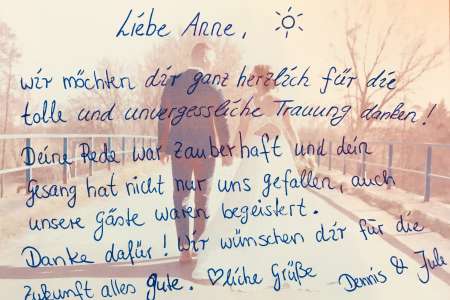 Liebe Anne,
wir möchten dir ganz herzlich für die
tolle und unvergessliche Trauung danken!
Deine Rede war zauberhaft und dein
Gesang hat nicht nur uns gefallen, auch
unsere Gäste waren begeistert.
Danke dafür! Wir wünschen dir für die
Zukunft alles gute. ♡liche Grüße Dennis & Jule